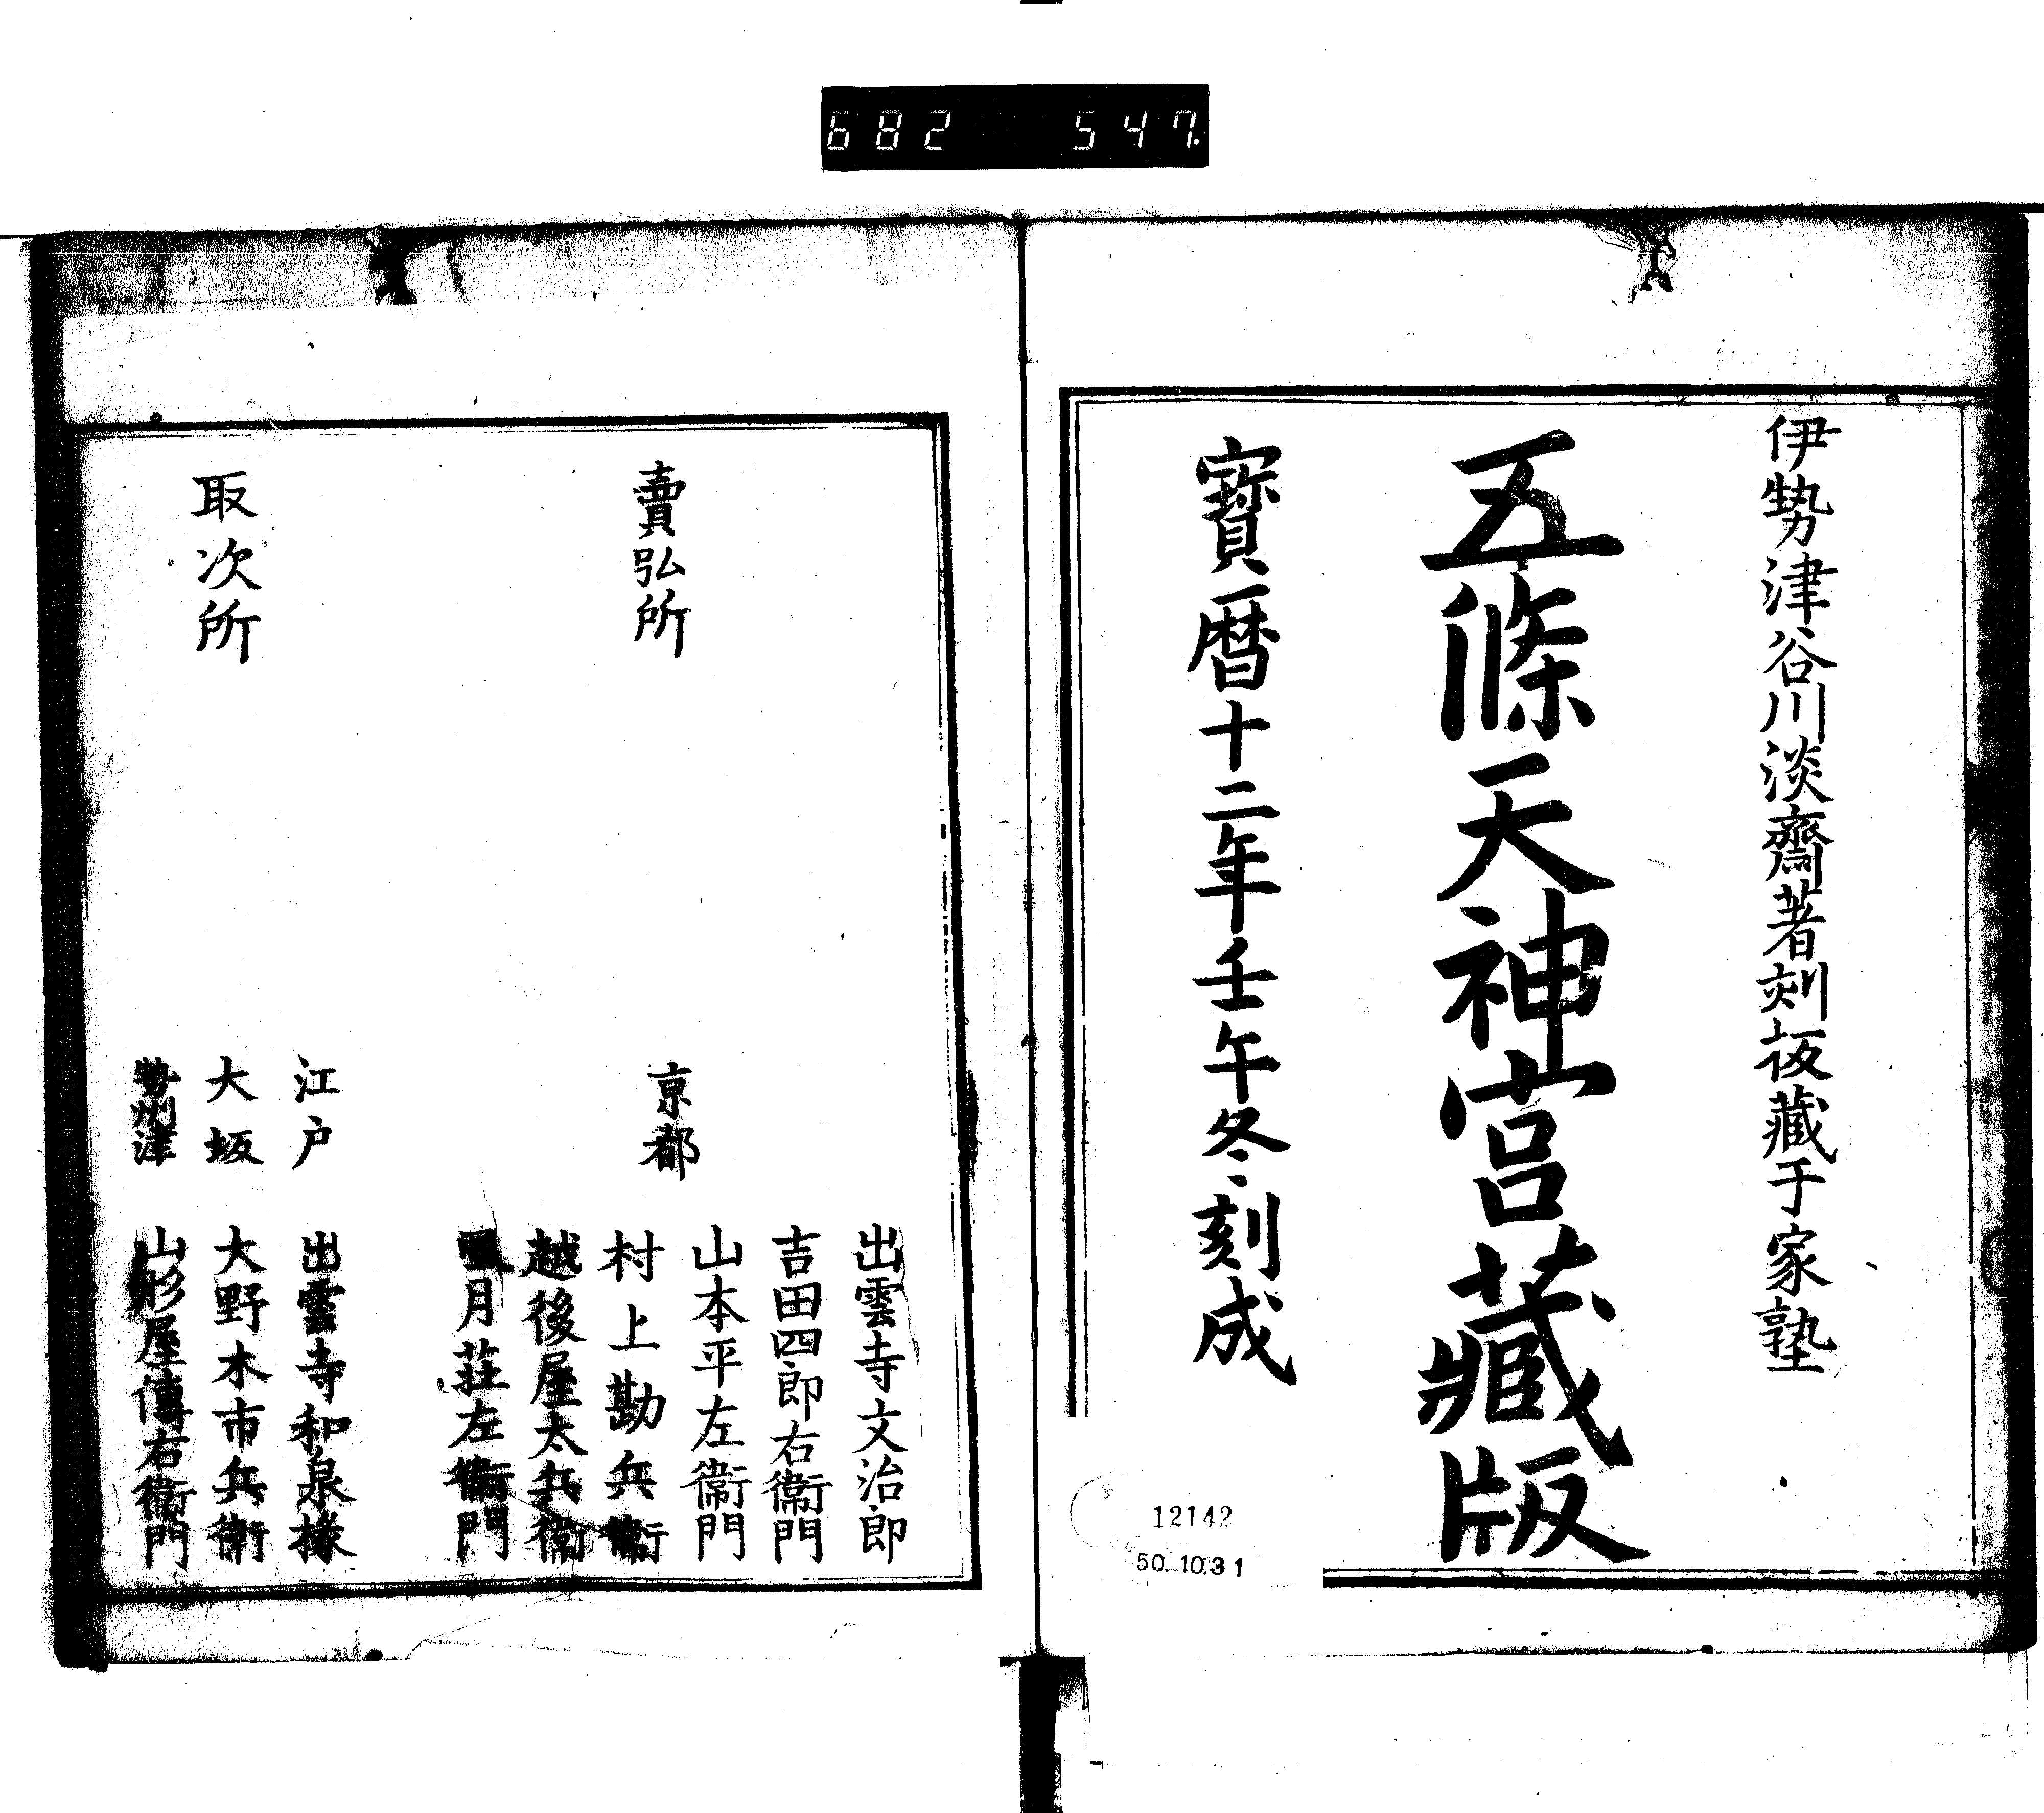 682 547.
伊勢津谷川淡齋著刻板藏于家塾
五條天神宮藏版
寶暦十二年壬午冬刻成
12142
50.10.31
賣弘所
京都
出雲寺文治郎
吉田四郎右衞門
山本平左衞門
村上勘兵衞
越後屋太兵衞
風月莊左衞門
取次所
江戸 出雲寺和泉掾
大坂 大野木市兵衞
勢州津 山形屋傳右衞門